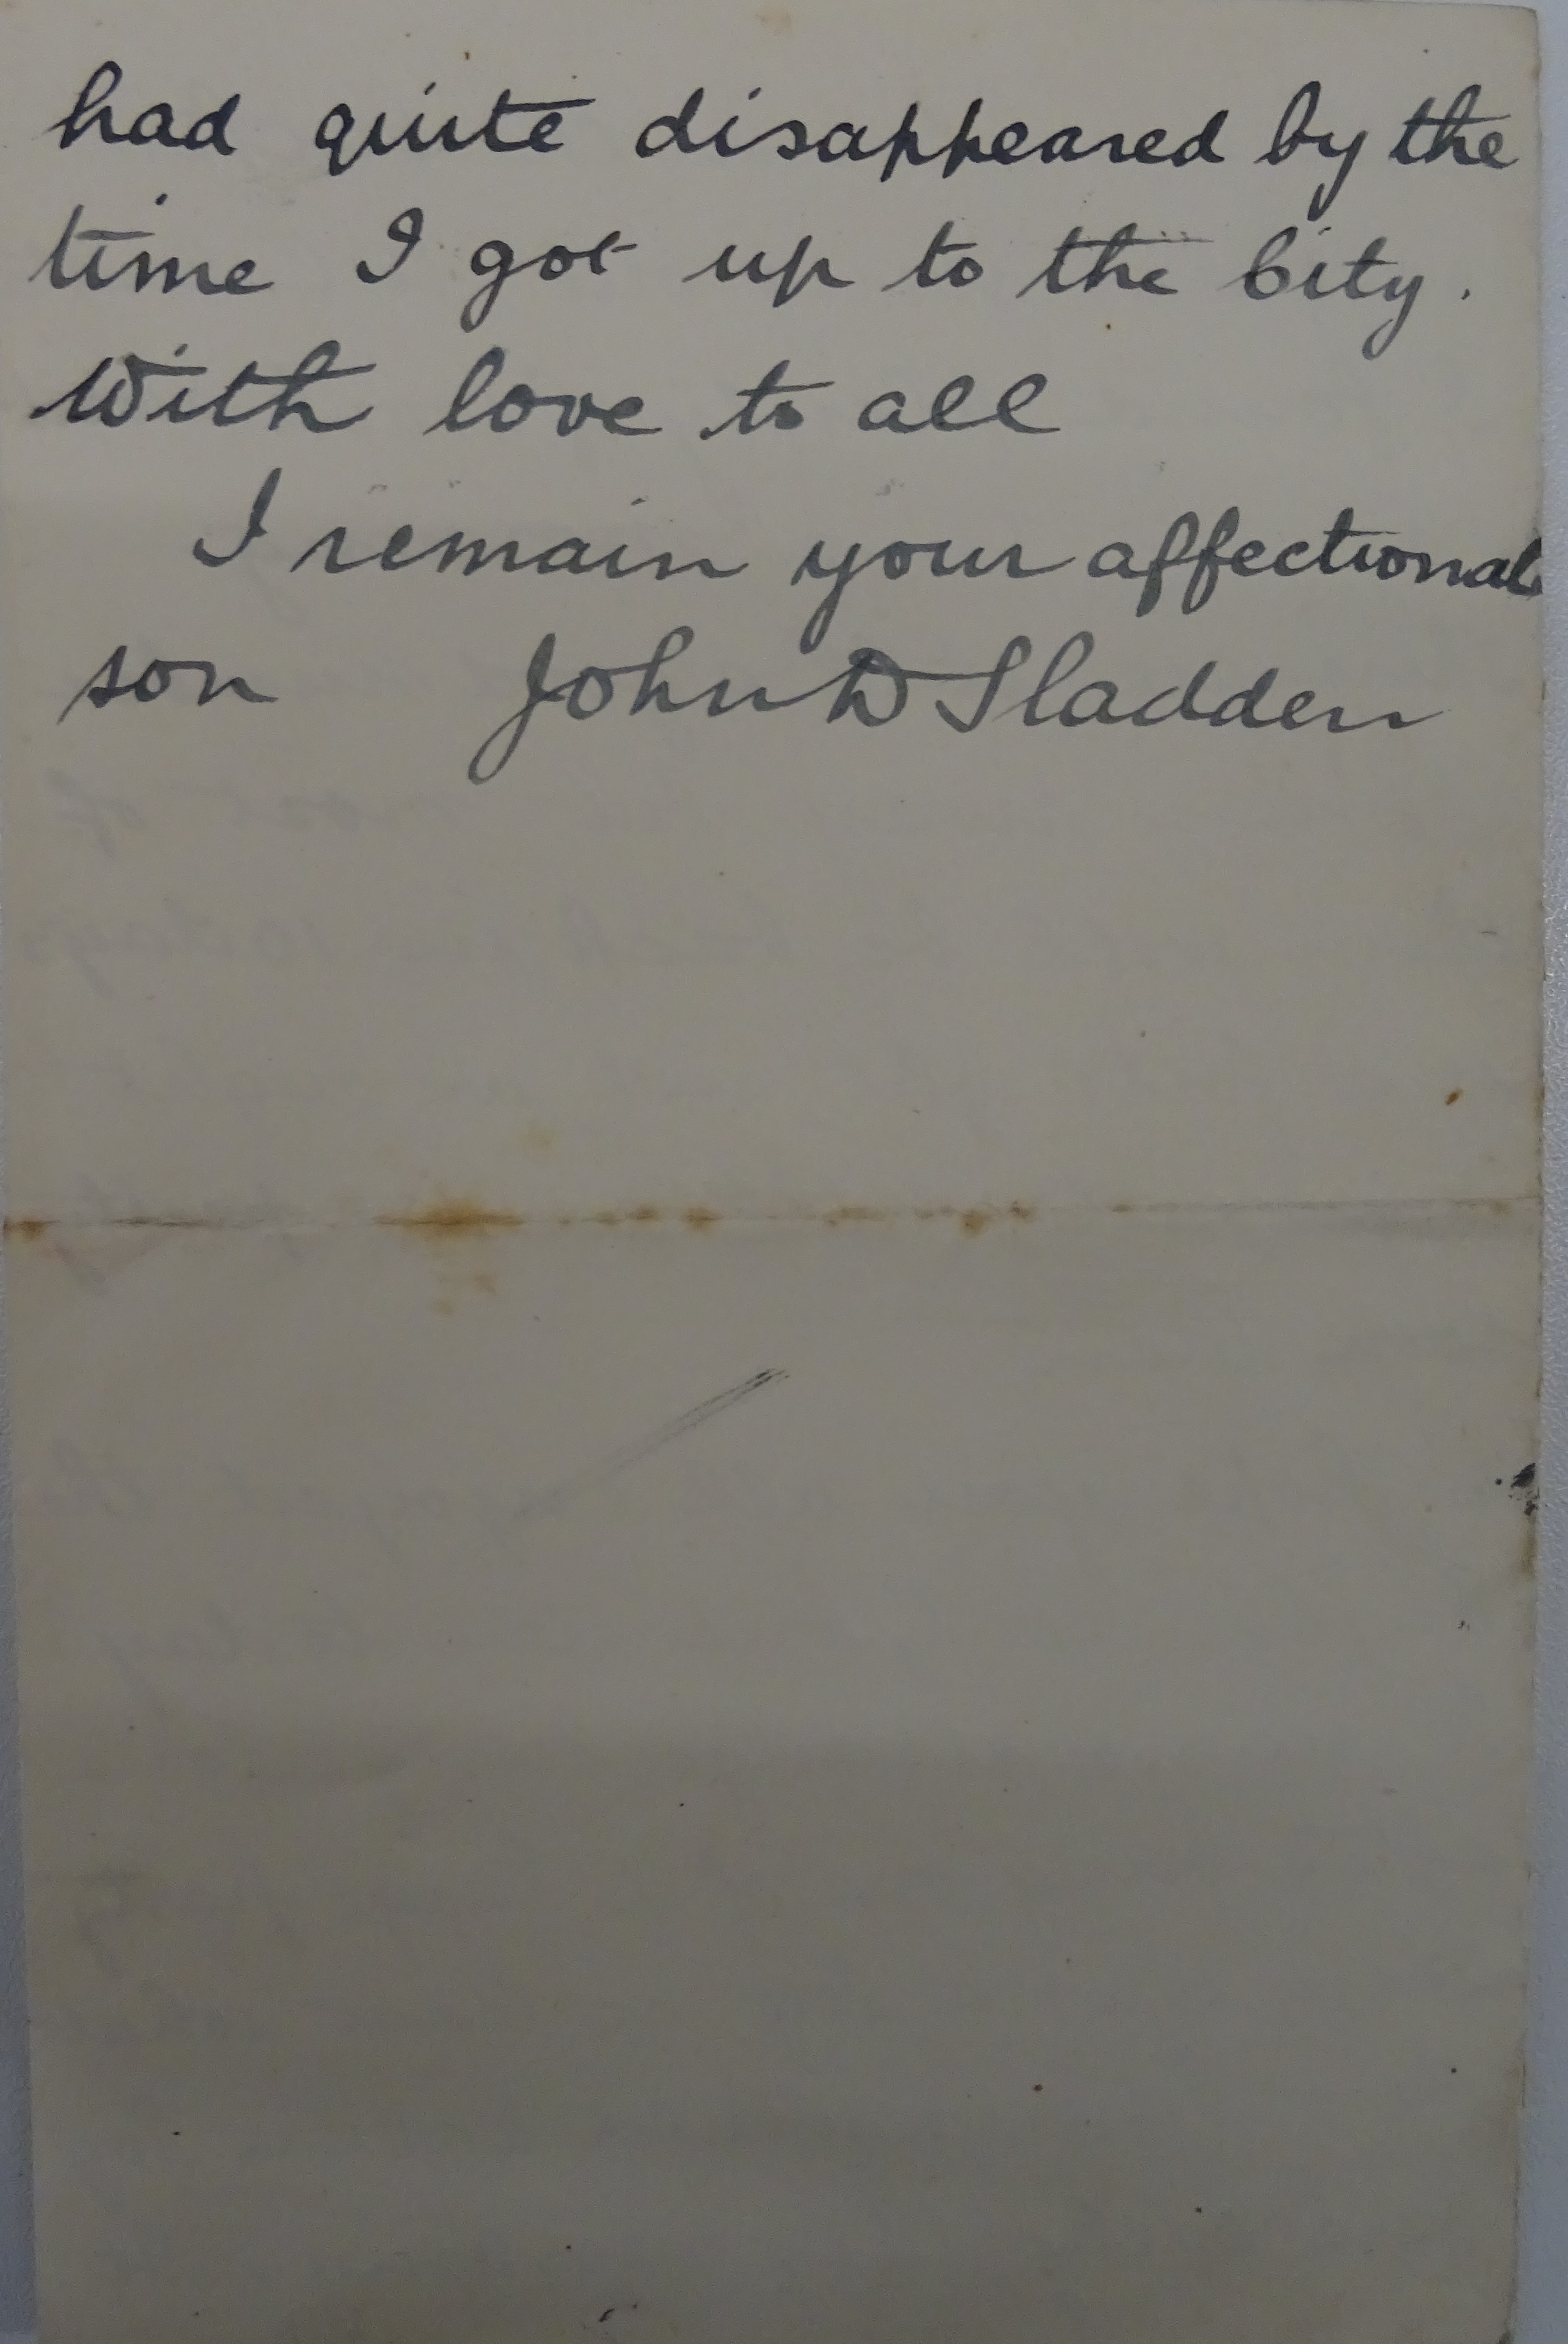 had quite disappeared by the
time I got up to the City.
With love to all
I remain your affectional
son John D Sladden